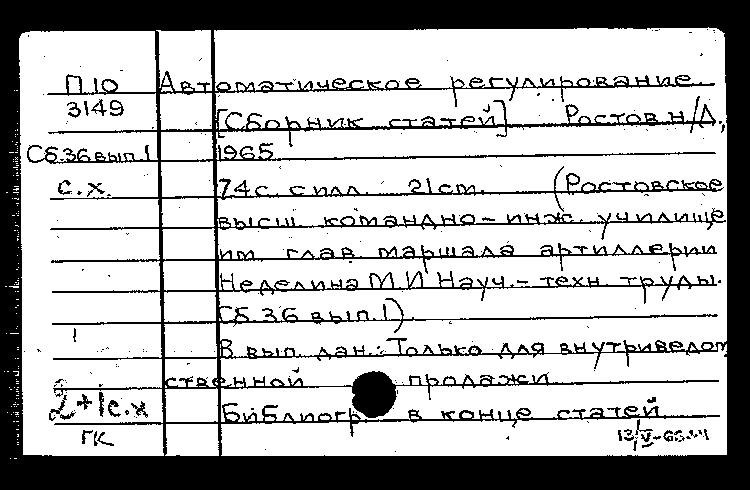 П.10 Автоматическое регулирование
3149 [Сборник статей] Ростов н/Д,
Сб.36 вып.1 1965
с.х. 74с. с илл. 21cm. (Ростовское
высш. командно-инж. училище
им. глав. маршала артиллерии
Неделина М.И Науч.-техн. труды.
Сб.36 вып.1).
1 В вып. дан.: Только для внутриведом
ственной продажи
2+1с.х Библиогр. в конце статей
ГК